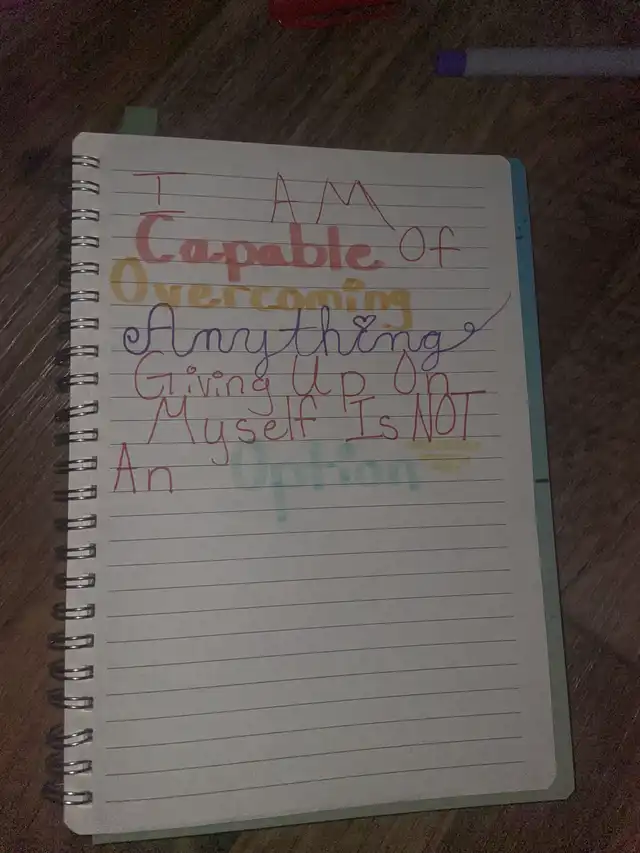 I AM
Capable Of
Overcoming
Anything
Giving Up On
Myself Is NOT
An Option